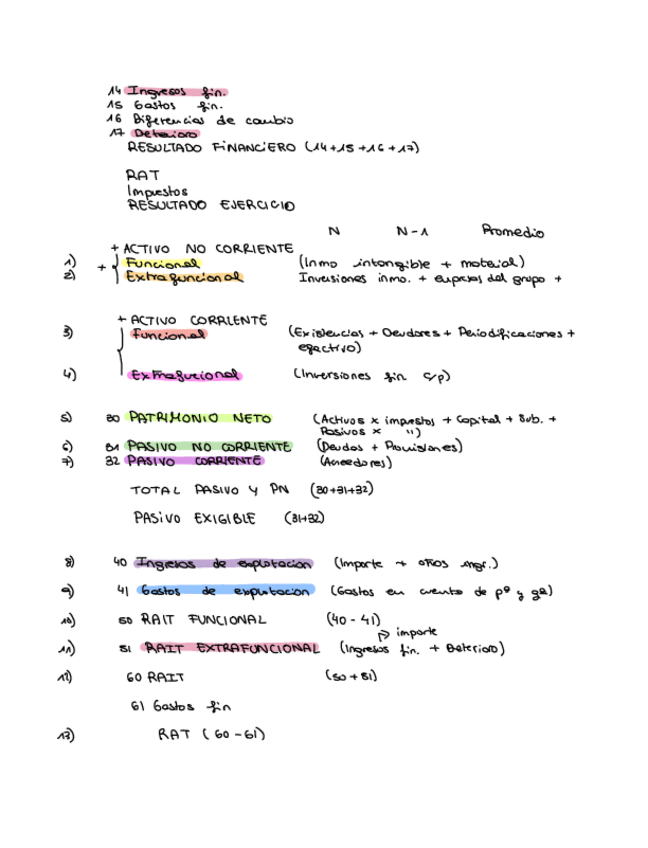 14 Ingresos fin.
15 Gastos fin.
16 Diferencias de cambio
17 Deterioro
RESULTADO FINANCIERO (14+15+16+17)
RAT
Impuestos
RESULTADO EJERCICIO
N N-1 Promedio
+ ACTIVO NO CORRIENTE
1) + { Funcional (Inmo intangible + material)
2) Extrafuncional Inversiones inmo. + empresas del grupo +
+ ACTIVO CORRIENTE
3) Funcional (Existencias + Deudores + Periodificaciones + efectivo)
4) Extrafuncional (Inversiones fin c/p)
5) 30 PATRIMONIO NETO (Activos x impuestos + Capital + Sub. +
Pasivos x ")
6) 31 PASIVO NO CORRIENTE (Deudas + Provisiones)
7) 32 PASIVO CORRIENTE (Acreedores)
TOTAL PASIVO Y PN (30+31+32)
PASIVO EXIGIBLE (31+32)
8) 40 Ingresos de explotacion (Importe + otros ingr.)
9) 41 Gastos de explotacion (Gastos en cuenta de pº y gª)
10) 50 RAIT FUNCIONAL (40 - 41)
importe
11) 51 RAIT EXTRAFUNCIONAL (Ingresos fin. + Deterioro)
12) 60 RAIT (50 + 51)
61 Gastos fin
13) RAT (60 - 61)